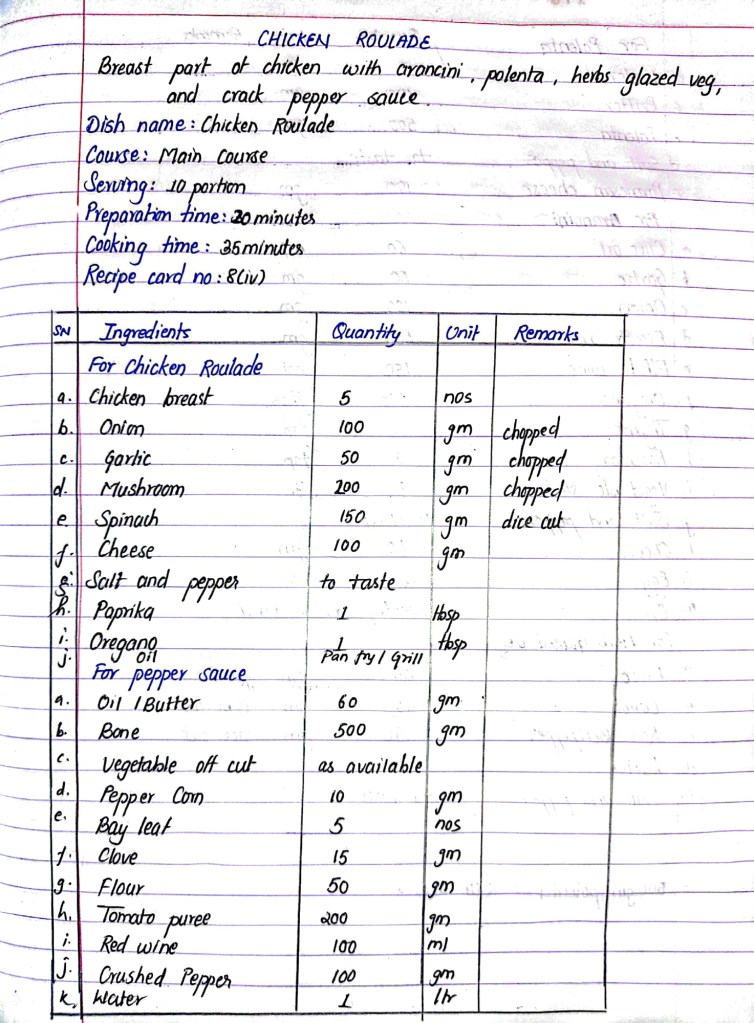 CHICKEN ROULADE
Breast part of chicken with aroncini, polenta, herbs glazed veg,
and crack pepper sauce.
Dish name: Chicken Roulade
Course: Main Course
Serving: 10 portion
Preparation time: 20 minutes
Cooking time: 35 minutes
Recipe card no: 8(iv)
SN Ingredients Quantity Unit Remarks
For Chicken Roulade
a. Chicken breast 5 nos
b. Onion 100 gm chopped
c. Garlic 50 gm chopped
d. Mushroom 200 gm chopped
e Spinach 150 gm dice cut
f. Cheese 100 gm
g. Salt and pepper to taste
h. Paprika 1 tbsp
i. Oregano 1 tbsp
j. Oil Pan fry / Grill
For pepper sauce
a. Oil / Butter 60 gm
b. Bone 500 gm
c. Vegetable off cut as available
d. Pepper Corn 10 gm
e. Bay leaf 5 nos
f. Clove 15 gm
g. Flour 50 gm
h. Tomato puree 200 gm
i. Red wine 100 ml
j. Crushed Pepper 100 gm
k. Water 1 ltr